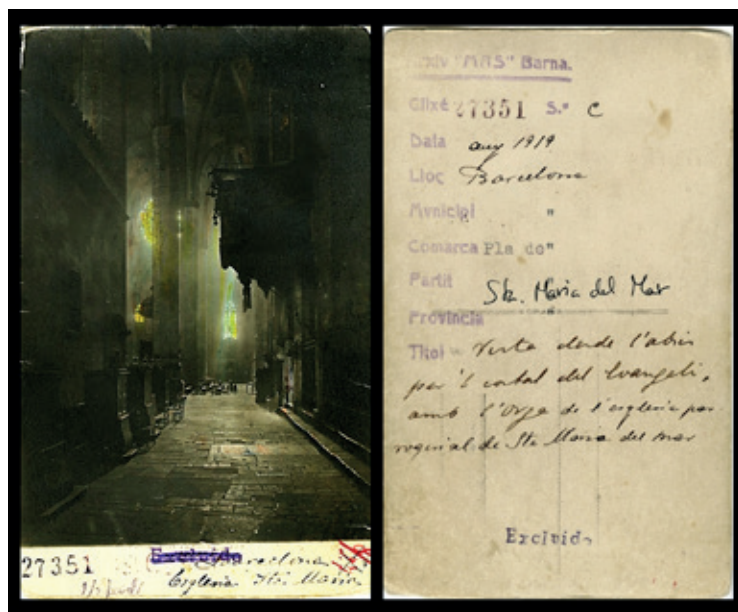 27351
Excluido
Barcelona
Esglesia Sta. Maria
Arxiv "MAS" Barna.
Clixé 27351 S.ª C
Data any 1919
Lloc Barcelona
Municipi "
Comarca Pla de "
Partit
Sta. Maria del Mar
Provincia "
Titol - Vista desde l'absis
per'l costat del Evangeli,
amb l'orga de l'esglesia par
roquial de Sta Maria del mar
Excluido